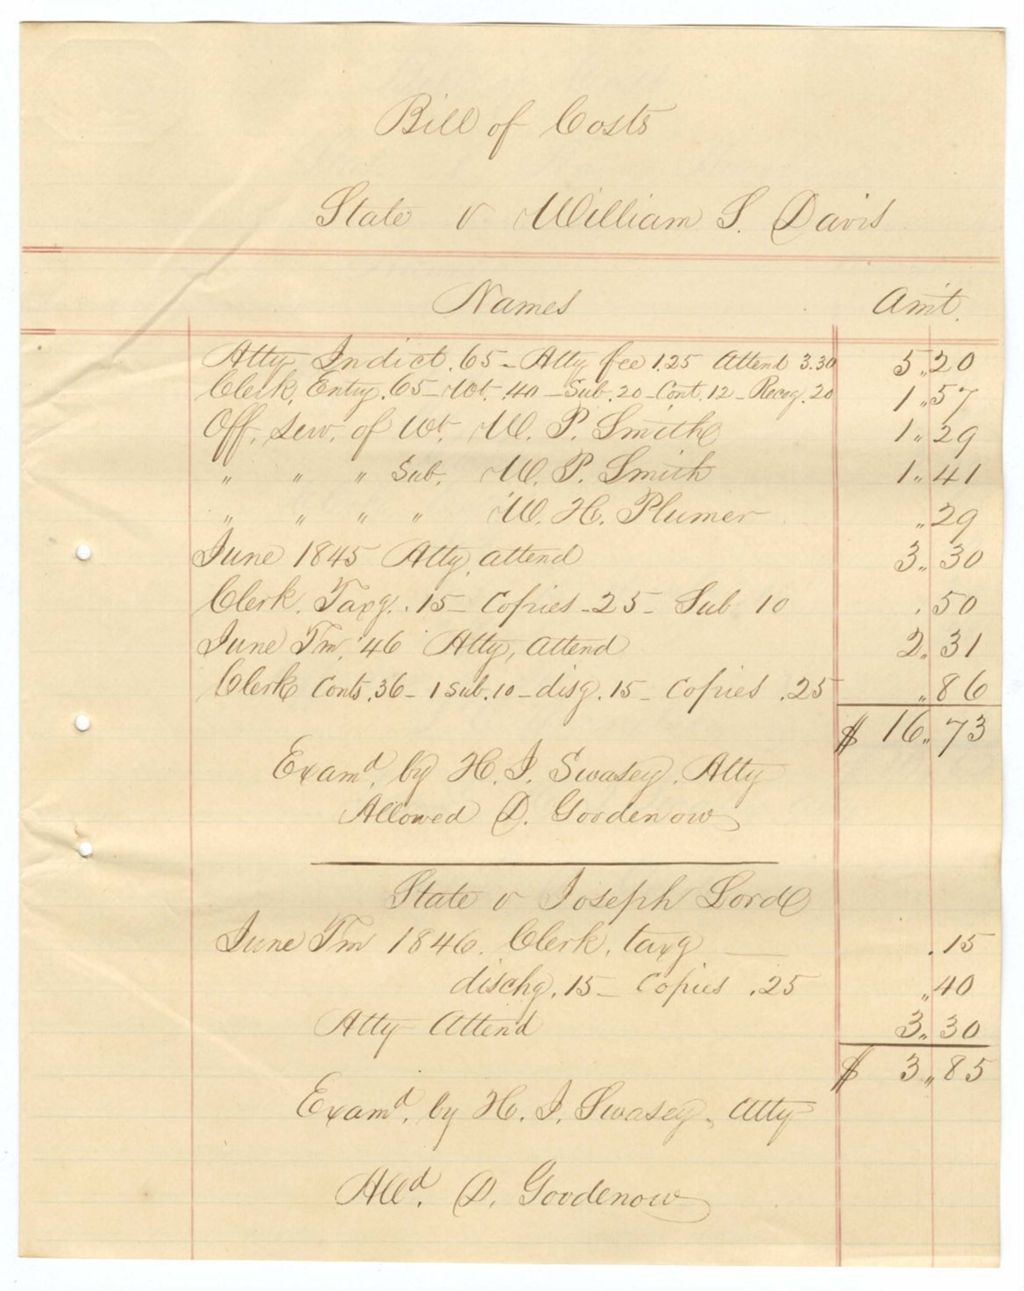 Bill of Costs
State v William S. Davis
Names Amt.
Atty Indict. 65 - Atty fee 1.25 Attend 3.30 5.,20
Clerk, Entry. 65 - Wt. 40 - Sub. 20 - Cont. 12 - Recog. 20 1.,57
Off. serv. of Wt. W. P. Smith 1.,29
" " " Sub. W. P. Smith 1.,41
" " " " W. H. Plumer .,29
June 1845 Atty, attend 3.,30
Clerk. Taxg. .15 - Copies - 25 - Sub 10 .50
June Tm. '46 Atty, attend 2.,31
Clerk Conts. 36 - 1 Sub. 10 - disg. 15 - Copies .25 .,86
$ 16.,73
Examd. by H. I. Swasey. Atty
Allowed D. Goodenow
State v Joseph Lord
June Tm 1846. Clerk. taxg .15
dischg. 15 - Copies .25 .,40
Atty Attend 3.,30
$ 3.,85
Examd. by H. I. Swasey. Atty
Alld. D. Goodenow